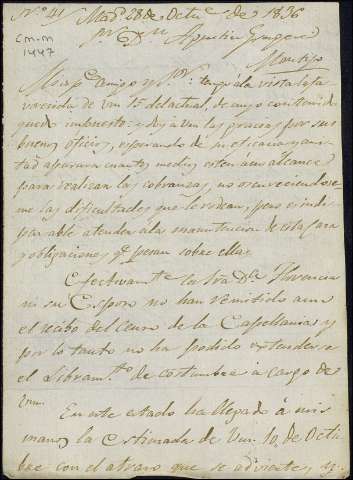 Nº 41 Madd 28 de Octe de 1836
C.M.M
1447
Sr Dn Agustin
Motrico
Mi apdo amigo y Sor: tengo a la vista la fa
vorecida de Vm 15 del actual, de cuyo contenido
quedo impuesto: y doy a Vm las gracias por sus
buenos oficios, esperando de su eficacia y amis
tad apurara cuantos medios esten a su alcance
para realizar las cobranzas, no oscureciendose
me las dificultades que le rodean, pero es indis
pensable atender a la manutencion de esta Casa
y obligaciones qe pesan sobre ella.
Efectivamte la Sra Da Florencia
ni su Esposo no han remitido aun
el recibo del censo de la Capellania; y
por lo tanto no ha podido estenderse
el Libramto de costumbre a cargo de
Vm.
En este estado ha llegado á mis
manos la Estimada de Vm. 10, de Octu
bre con el atraso que se advierte, y